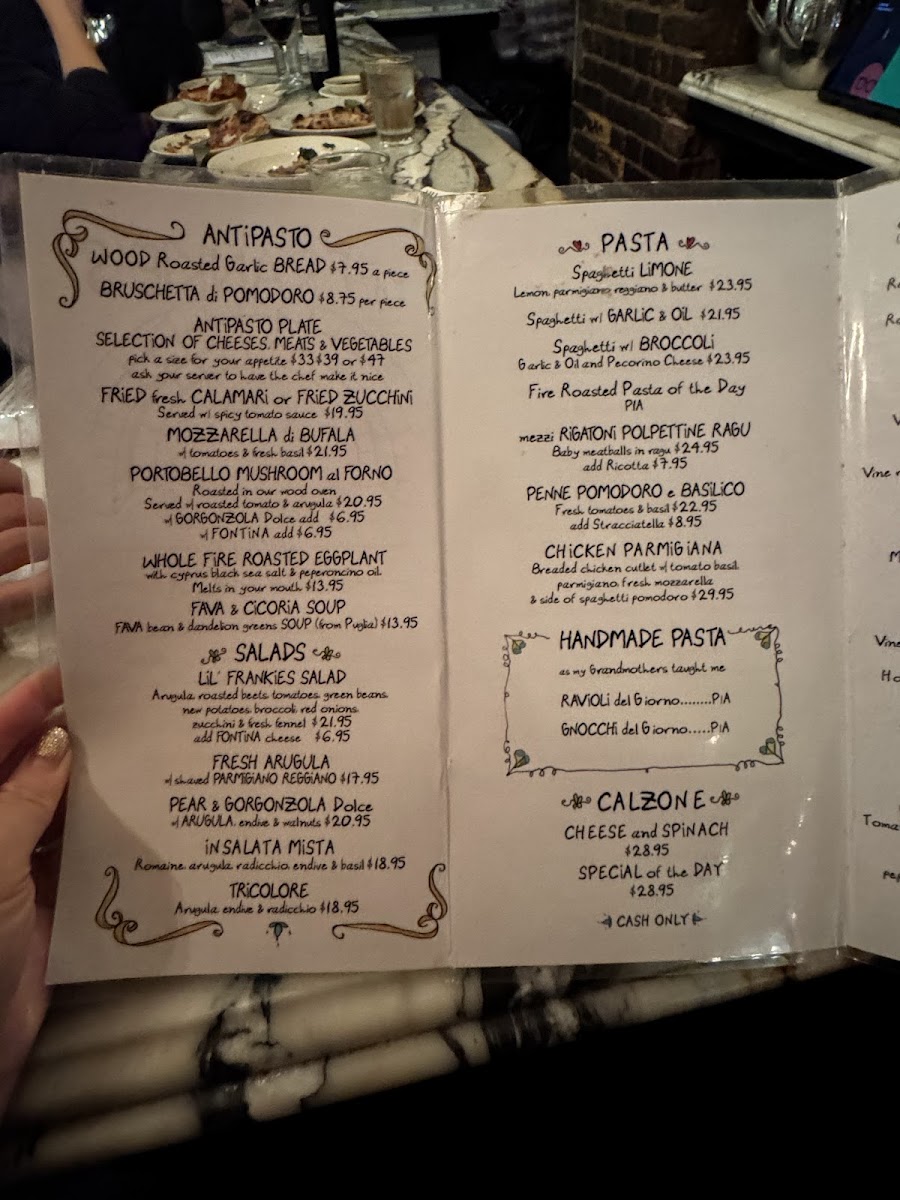 ANTIPASTO
WOOD Roasted Garlic BREAD $7.95 a piece
BRUSCHETTA di POMODORO $8.75 per piece
ANTIPASTO PLATE
SELECTION OF CHEESES, MEATS & VEGETABLES
pick a size for your appetite $33 $39 or $47
ask your server to have the chef make it nice
FRIED fresh CALAMARI or FRIED ZUCCHINI
Served w/ spicy tomato sauce $19.95
MOZZARELLA di BUFALA
w/ tomatoes & fresh basil $21.95
PORTOBELLO MUSHROOM al FORNO
Roasted in our wood oven
Served w/ roasted tomato & arugula $20.95
w/ GORGONZOLA Dolce add $6.95
w/ FONTINA add $6.95
WHOLE FIRE ROASTED EGGPLANT
with cyprus black sea salt & peperoncino oil.
Melts in your mouth $13.95
FAVA & CICORIA SOUP
FAVA bean & dandelion greens SOUP (from Puglia) $13.95
SALADS
LIL' FRANKIES SALAD
Arugula, roasted beets, tomatoes, green beans,
new potatoes, broccoli, red onions,
zucchini & fresh fennel $21.95
add FONTINA cheese $6.95
FRESH ARUGULA
w/ shaved PARMIGIANO REGGIANO $17.95
PEAR & GORGONZOLA Dolce
w/ ARUGULA, endive & walnuts $20.95
INSALATA MISTA
Romaine, arugula, radicchio, endive & basil $18.95
TRICOLORE
Arugula, endive & radicchio $18.95
PASTA
Spaghetti LIMONE
Lemon, parmigiano reggiano & butter $23.95
Spaghetti w/ GARLIC & OIL $21.95
Spaghetti w/ BROCCOLI
Garlic & Oil and Pecorino Cheese $23.95
Fire Roasted Pasta of the Day
PIA
mezzi RIGATONI POLPETTINE RAGU
Baby meatballs in ragu $24.95
add Ricotta $7.95
PENNE POMODORO e BASILICO
Fresh tomatoes & basil $22.95
add Stracciatella $8.95
CHICKEN PARMIGIANA
Breaded chicken cutlet w/ tomato basil,
parmigiano, fresh mozzarella
& side of spaghetti pomodoro $29.95
HANDMADE PASTA
as my Grandmothers taught me
RAVIOLI del Giorno........PIA
GNOCCHI del Giorno.....PIA
CALZONE
CHEESE and SPINACH
$28.95
SPECIAL of the DAY
$28.95
CASH ONLY
Vine
Vine
Toma